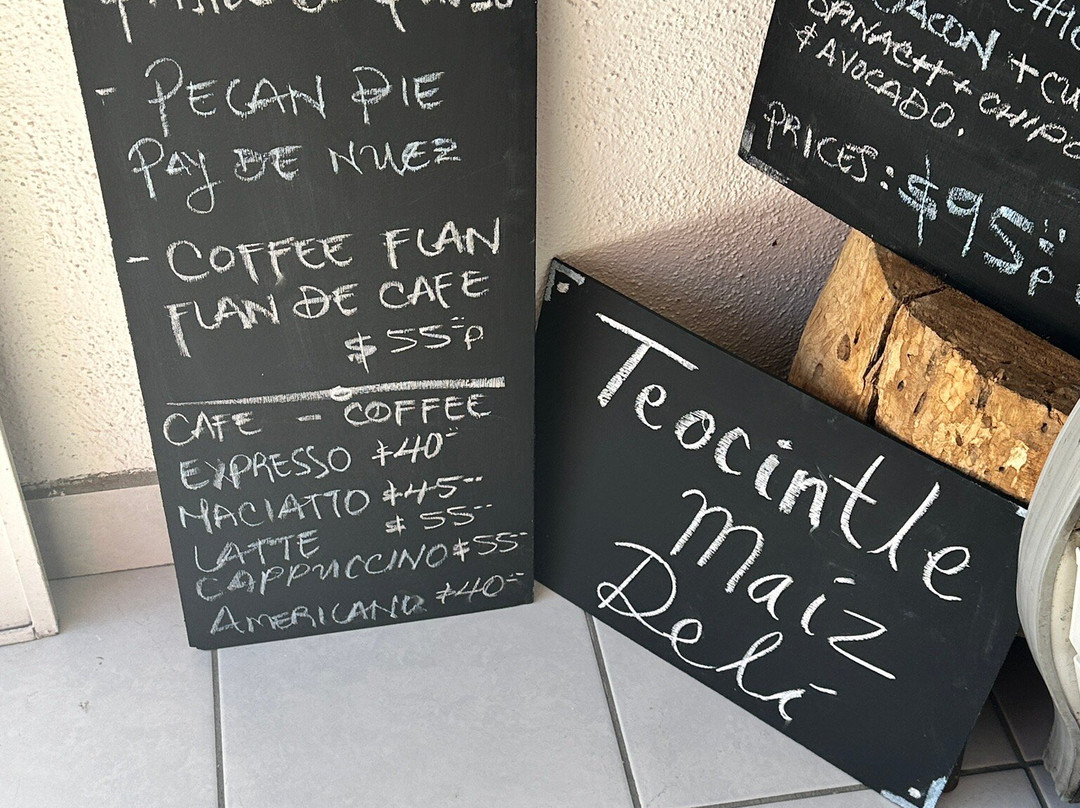 - PECAN PIE
PAY DE NUEZ
- COFFEE FLAN
FLAN DE CAFE
$55=p
CAFE - COFFEE
EXPRESSO $40=
MACIATTO $45=
LATTE $55=
CAPPUCCINO $55=
AMERICANO $40=
Teocintle
Maíz
Deli
BACON + CU
SPANACH + CHIPO
& AVOCADO.
PRICES: $95=p